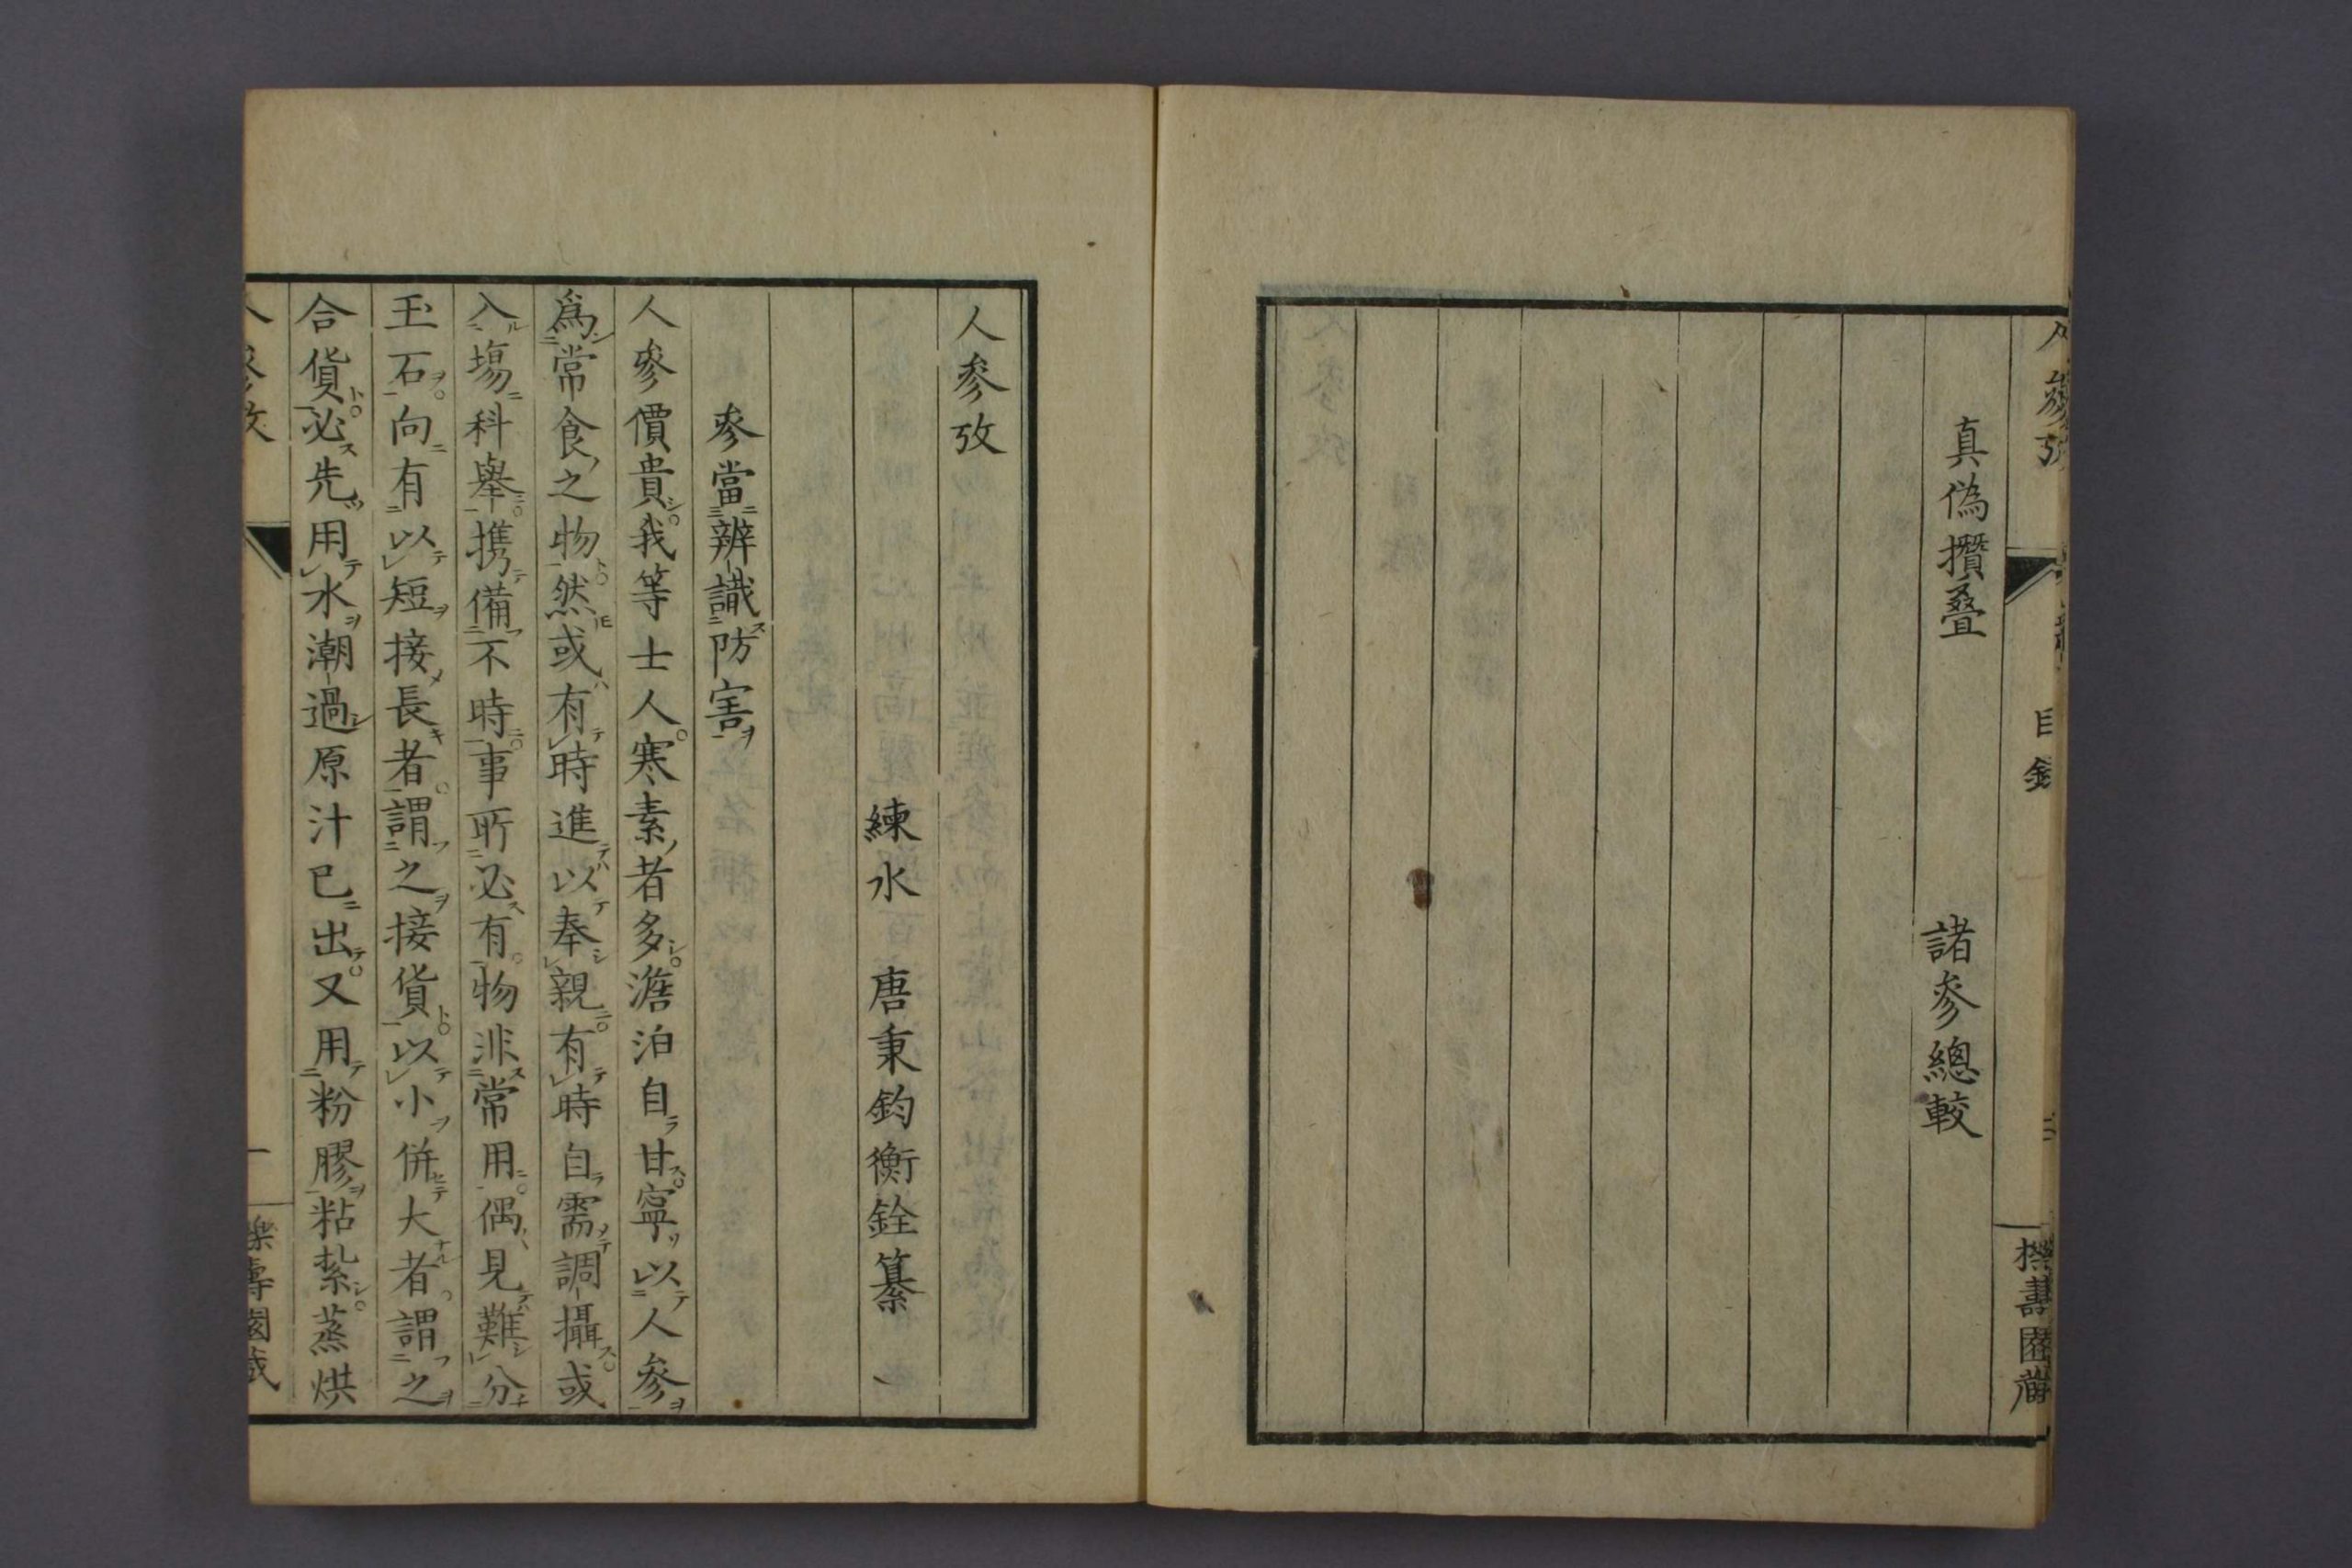 真偽攢疊
諸參總較
目錄
人參攷
練水 唐秉鈞衡銓纂
參當辨識防害
人參價貴我等士人寒素者多澹泊自甘寧以人參
爲常食之物然或有時進以奉親有時自需調攝或
入場科舉携備不時事所必有物非常用偶見難分
玉石向有以短接長者謂之接貨以小併大者謂之
合貨必先用水潮過原汁已出又用粉膠粘紮蒸烘
人參攷
一